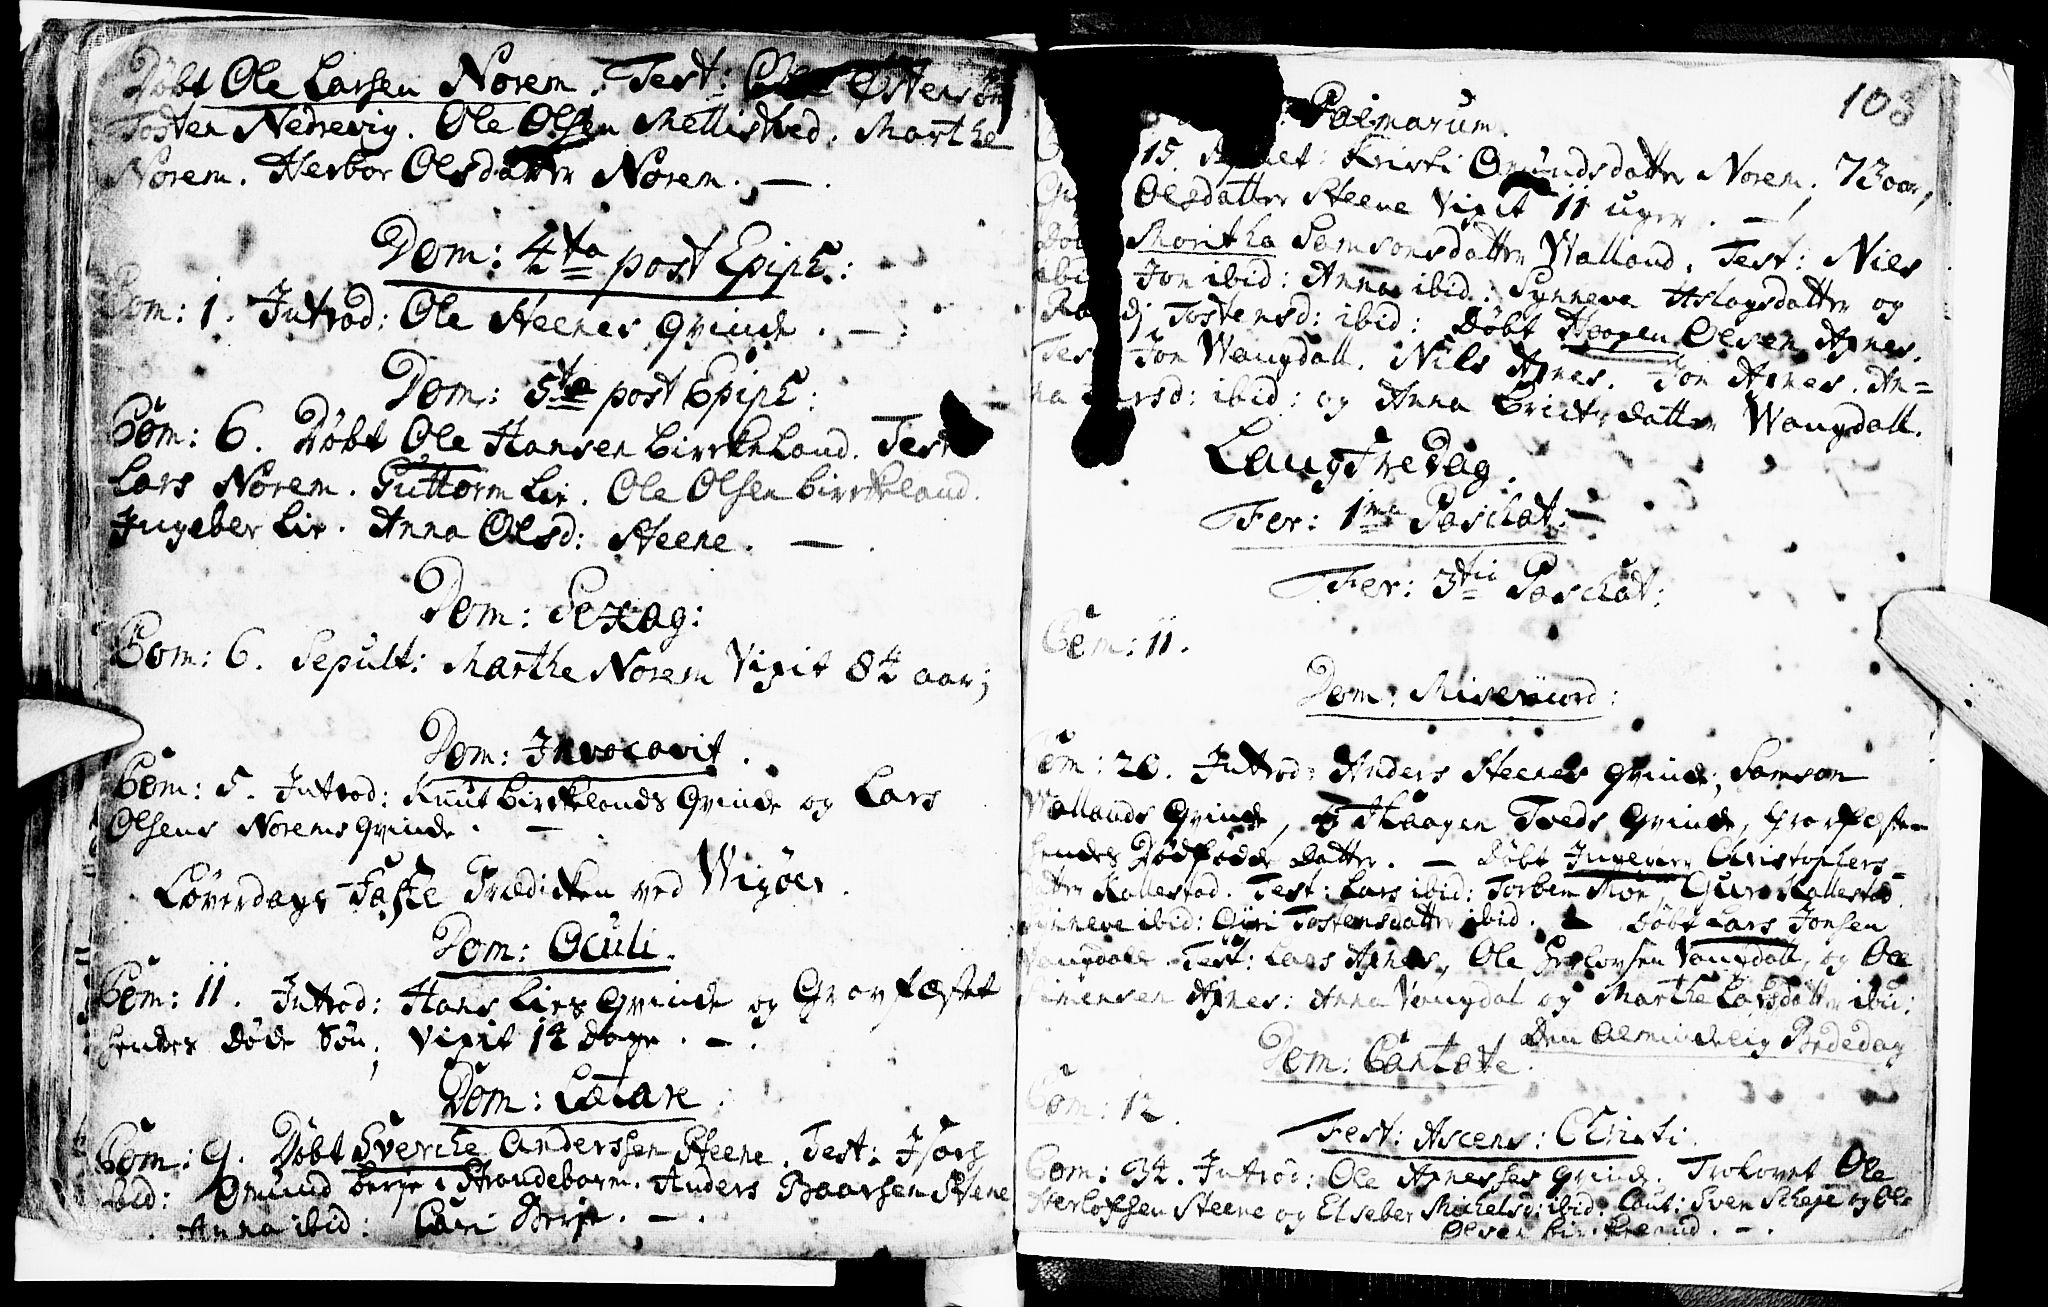 Døbt Ole Larsen Norem. Test: Ole Østensøn
Tosten Nedrevig. Ole Olsen Mellisted. Marthe
Norem. Herbor Olsdatter Norem. — .
Dom: 4ta post Epiph:
Com: 1. Introd: Ole Steenes Qvinde. — .
Dom: 5ta post Epiph:
Com: 6. Døbt Ole Hansen Birkeland. Test
Lars Norem. Guttorm Lie. Ole Olsen Birkeland.
Ingeber Lie. Anna Olsd: Steene. — .
Dom: Sexag:
Com: 6. Sepult: Marthe Norem Vixit 84 aar;
Dom: Invocavit.
Com: 5. Introd: Knut Birkelands Qvinde og Lars
Olsens Norems Qvinde. —
Løverdags Faste Prædicken ved Wigøer.
Dom: Oculi.
Com: 11. Introd: Hans Lies Qvinde og Gravfæstet
hendes døde Søn, Vixit 14 Dage. — .
Dom: Lætare.
Com: 9. Døbt Sverche Anderssen Steene. Test: Isach
ibid: Omund Berje i Strandebarm. Anders Baarsen Steene
Anna ibid: Guri Berje. — .
103
Palmarum.
15. Kristi Omundsdatter Norem, 73 aar,
Olsdatter Steene Vixit 11 uger. —
Døbt Moritha Samsonsdatter Walland. Test: Niels
ibid Jon ibid: Anna ibid: Synneve Aslagsdatter og
Tostensd: ibid: Døbt Haagen Olsen Axnes.
Test Jon Wangdall. Nils Axnes. Jon Axnes. An=
na Larsd: ibid: og Anna Brictsdatter Wangdall.
Langfredag.
Fer: 1ma Paschat: —
Fer: 3tii Paschat:
Com: 11.
Dom: Misericord:
Com: 20. Introd: Anders Steenes Qvinde, Samson
Wallands Qvinde, og Haagen Tveds Qvinde, Gravfæsten
hendes Dødfødde datter. — Døbt Ingeber Christophers=
datter Kallestad. Test: Lars ibid: Torben Moe, Guro Kallestad.
Sinneve ibid: Guri Tostensdatter ibid. — Døbt Lars Jonsen
Vangdall. Test: Lars Axnes, Ole Vangdall, og Ole
Simensen Axnes: Anna Vangdal og Marthe Larsdatter ibid:
Den Almindelig Bededag
Dom: Cantate.
Com: 12.
Fest: Ascens: Christi.
Com: 34. Introd: Ole Axnesses Qvinde. Trolovet Ole
Herlofsen Steene og Elseber Michelsd: ibid: Caut: Sven Skeje og Ole
Olsen Birkeland. — .